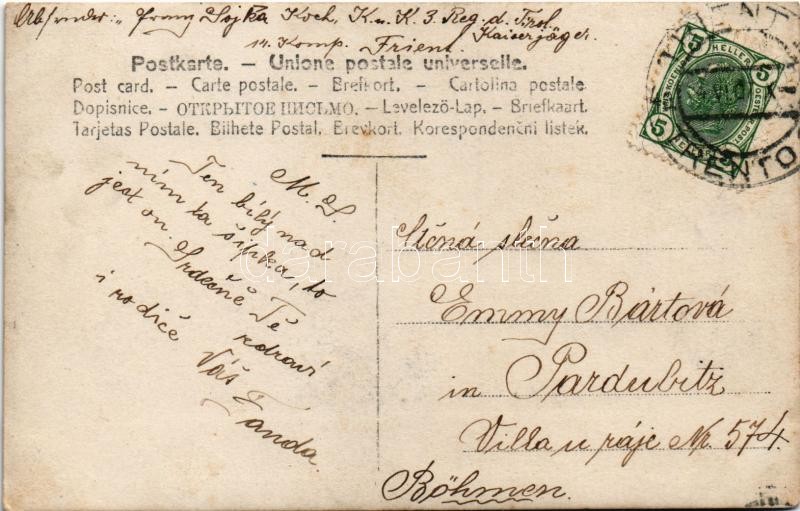 Absender: Franz Sojka Koch, K. u. K. 3. Reg. d. Tirol.
Kaiserjäger.
14. Komp. Trient.
Postkarte. – Unione postale universelle.
Post card. – Carte postale. – Brefkort. – Cartolina postale
Dopisnice. – ОТКРЫТОЕ ПИСЬМО. – Levelező-Lap. – Briefkaart.
Tarjetas Postale. Bilhete Postal. Brevkort. Korespondenčni listek.
5 HELLER 5
5
TRIENT
TRENTO
M. L.
Ten bílý nad
ním ta šipka, to
jest on. Srdečně Tě
zdraví
i rodiče Váš
Fanda.
Ctěná slečna
Emmy Bártová
in Pardubitz
Villa u ráje Nr. 574.
Böhmen.
darabanth